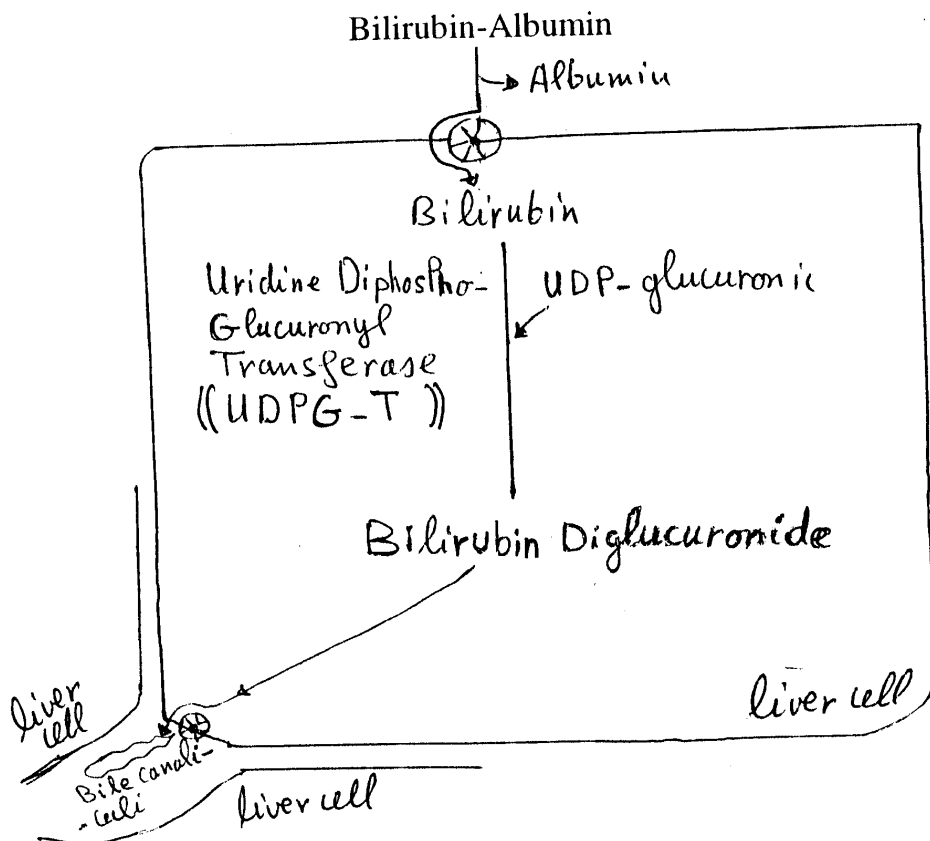 Bilirubin-Albumin
Albumin
Bilirubin
Uridine Diphospho-
Glucuronyl
Transferase
((UDPG-T))
UDP-glucuronic
Bilirubin Diglucuronide
liver
cell
liver cell
Bile canali-
-culi
liver cell